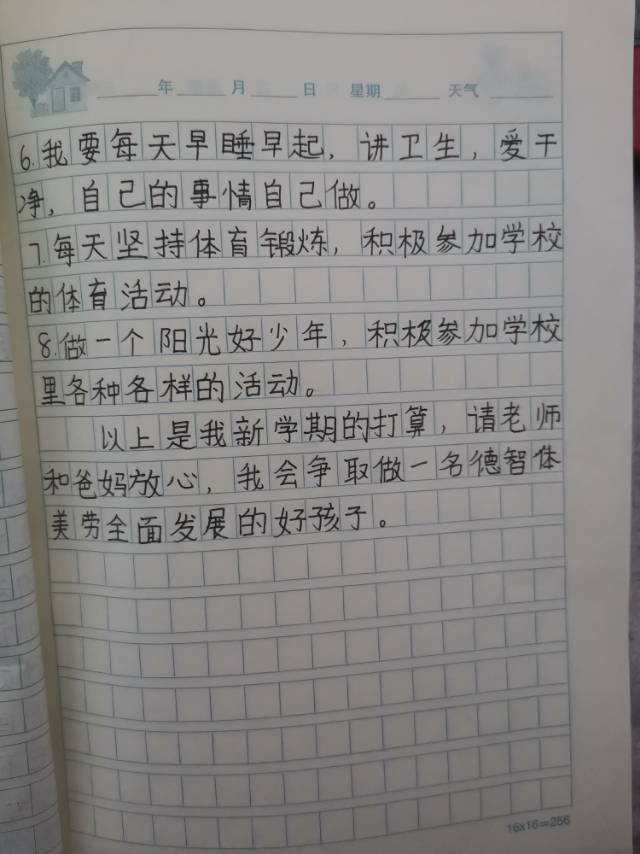 年 月 日 星期 天气
6.我要每天早睡早起，讲卫生，爱干
净，自己的事情自己做。
7.每天坚持体育锻炼，积极参加学校
的体育活动。
8.做一个阳光好少年，积极参加学校
里各种各样的活动。
以上是我新学期的打算，请老师
和爸妈放心，我会争取做一名德智体
美劳全面发展的好孩子。
16x16=256